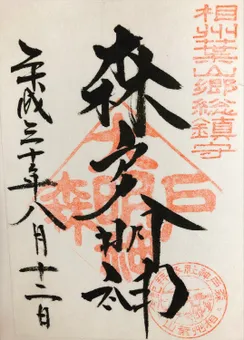 相州葉山郷総鎮守
森戸大明神
平成三十年八月十二日